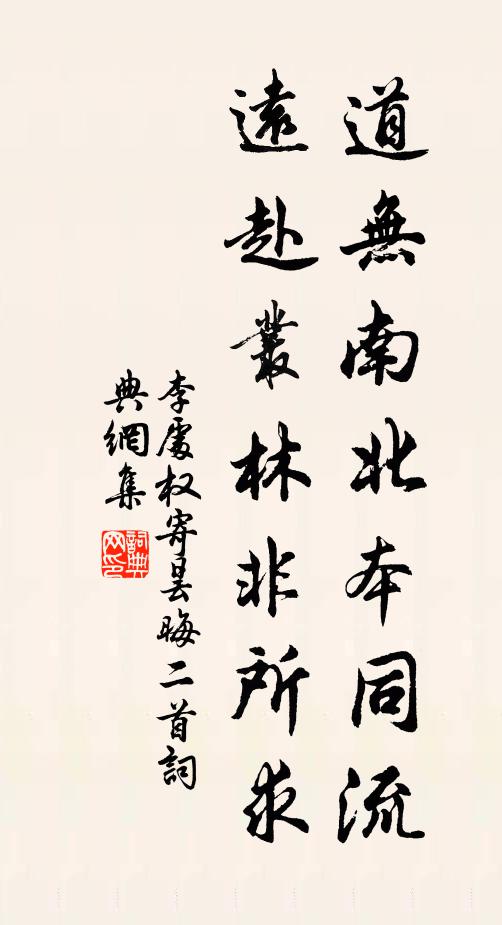 道無南北本同流
遠赴叢林非所求
李處权寄昙晦二首詞
典網集
詞典
网印